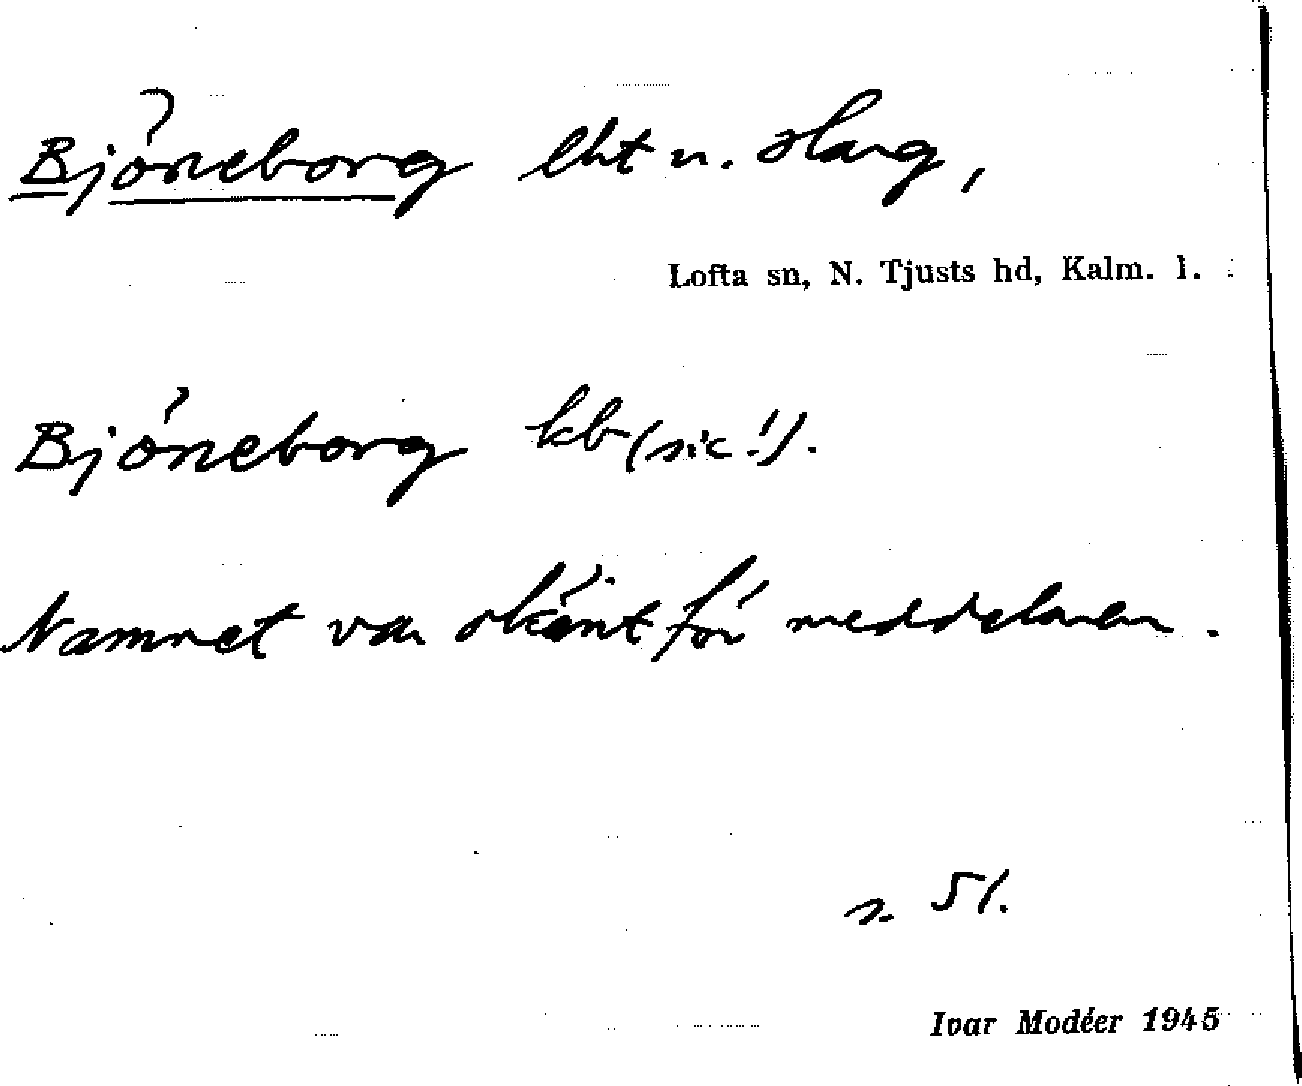 Björneborg lht u. Harg,
Lofta sn, N. Tjusts hd, Kalm. l.
Björneborg kb (sic!).
Namnet var okänt för meddelaren.
s. 51.
Ivar Modéer 1945